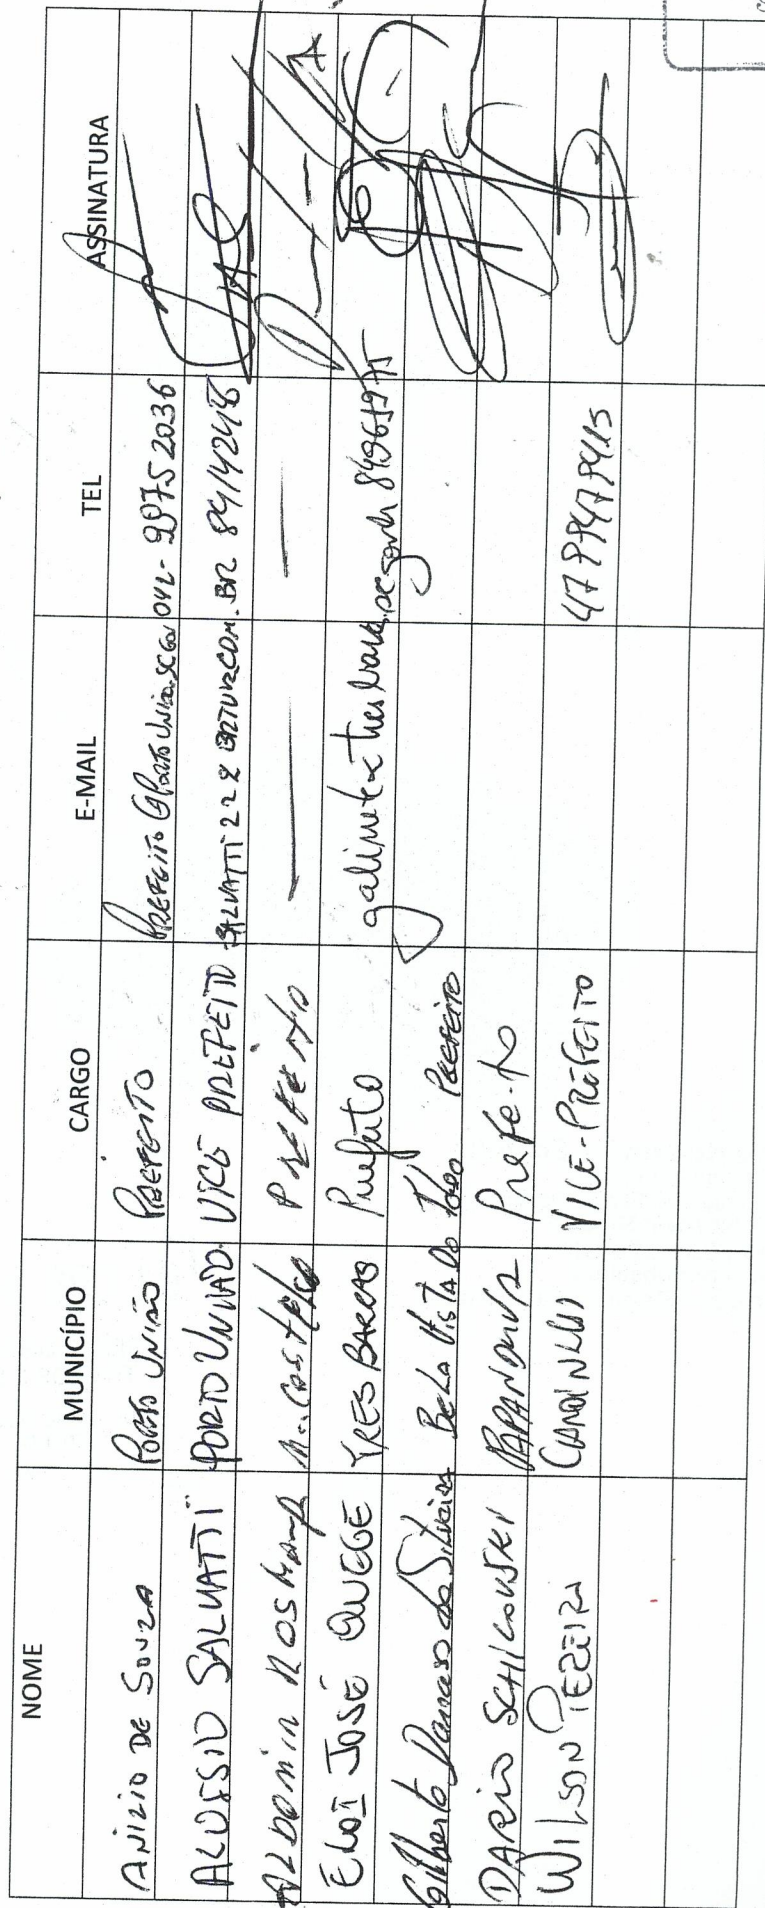 NOME MUNICÍPIO CARGO E-MAIL TEL ASSINATURA
ANIZIO DE SOUZA PORTO UNIÃO PREFEITO PREFEITO@PORTOUNIAO.SC.GOV 042-99752036
ALOISIO SALVATTI PORTO UNIÃO VICE PREFEITO SALVATTI 22 2 BRTURCOM.BR 84142418
ALDOMIR ROSKAMP M. CASTELO PREFEITO
ELOI JOSÉ QUEGE TRES BARRAS Prefeito 84961975
Gilberto Damaso da Silveira BELA VISTA DO TOLDO PREFEITO
DARIO SCHICOVSKI PAPANDUVA Prefeito
WILSON PEREIRA CANOINHAS VICE-PREFEITO